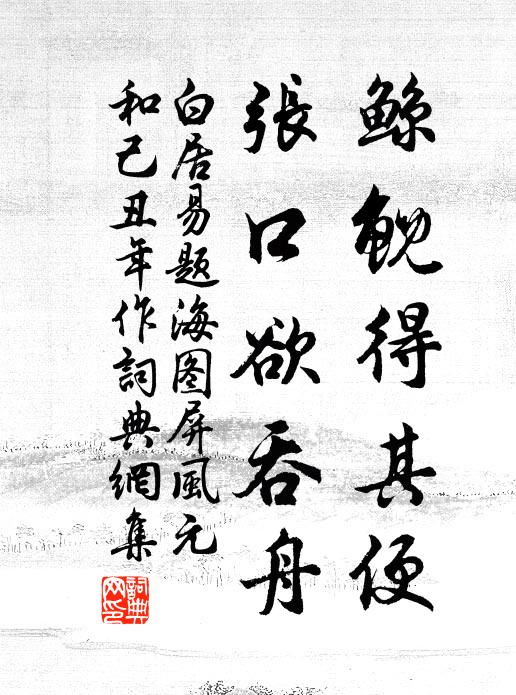 鲸鲵得其便
張口欲吞舟
白居易題海图屏風元
和己丑年作詞典網集
詞典网印